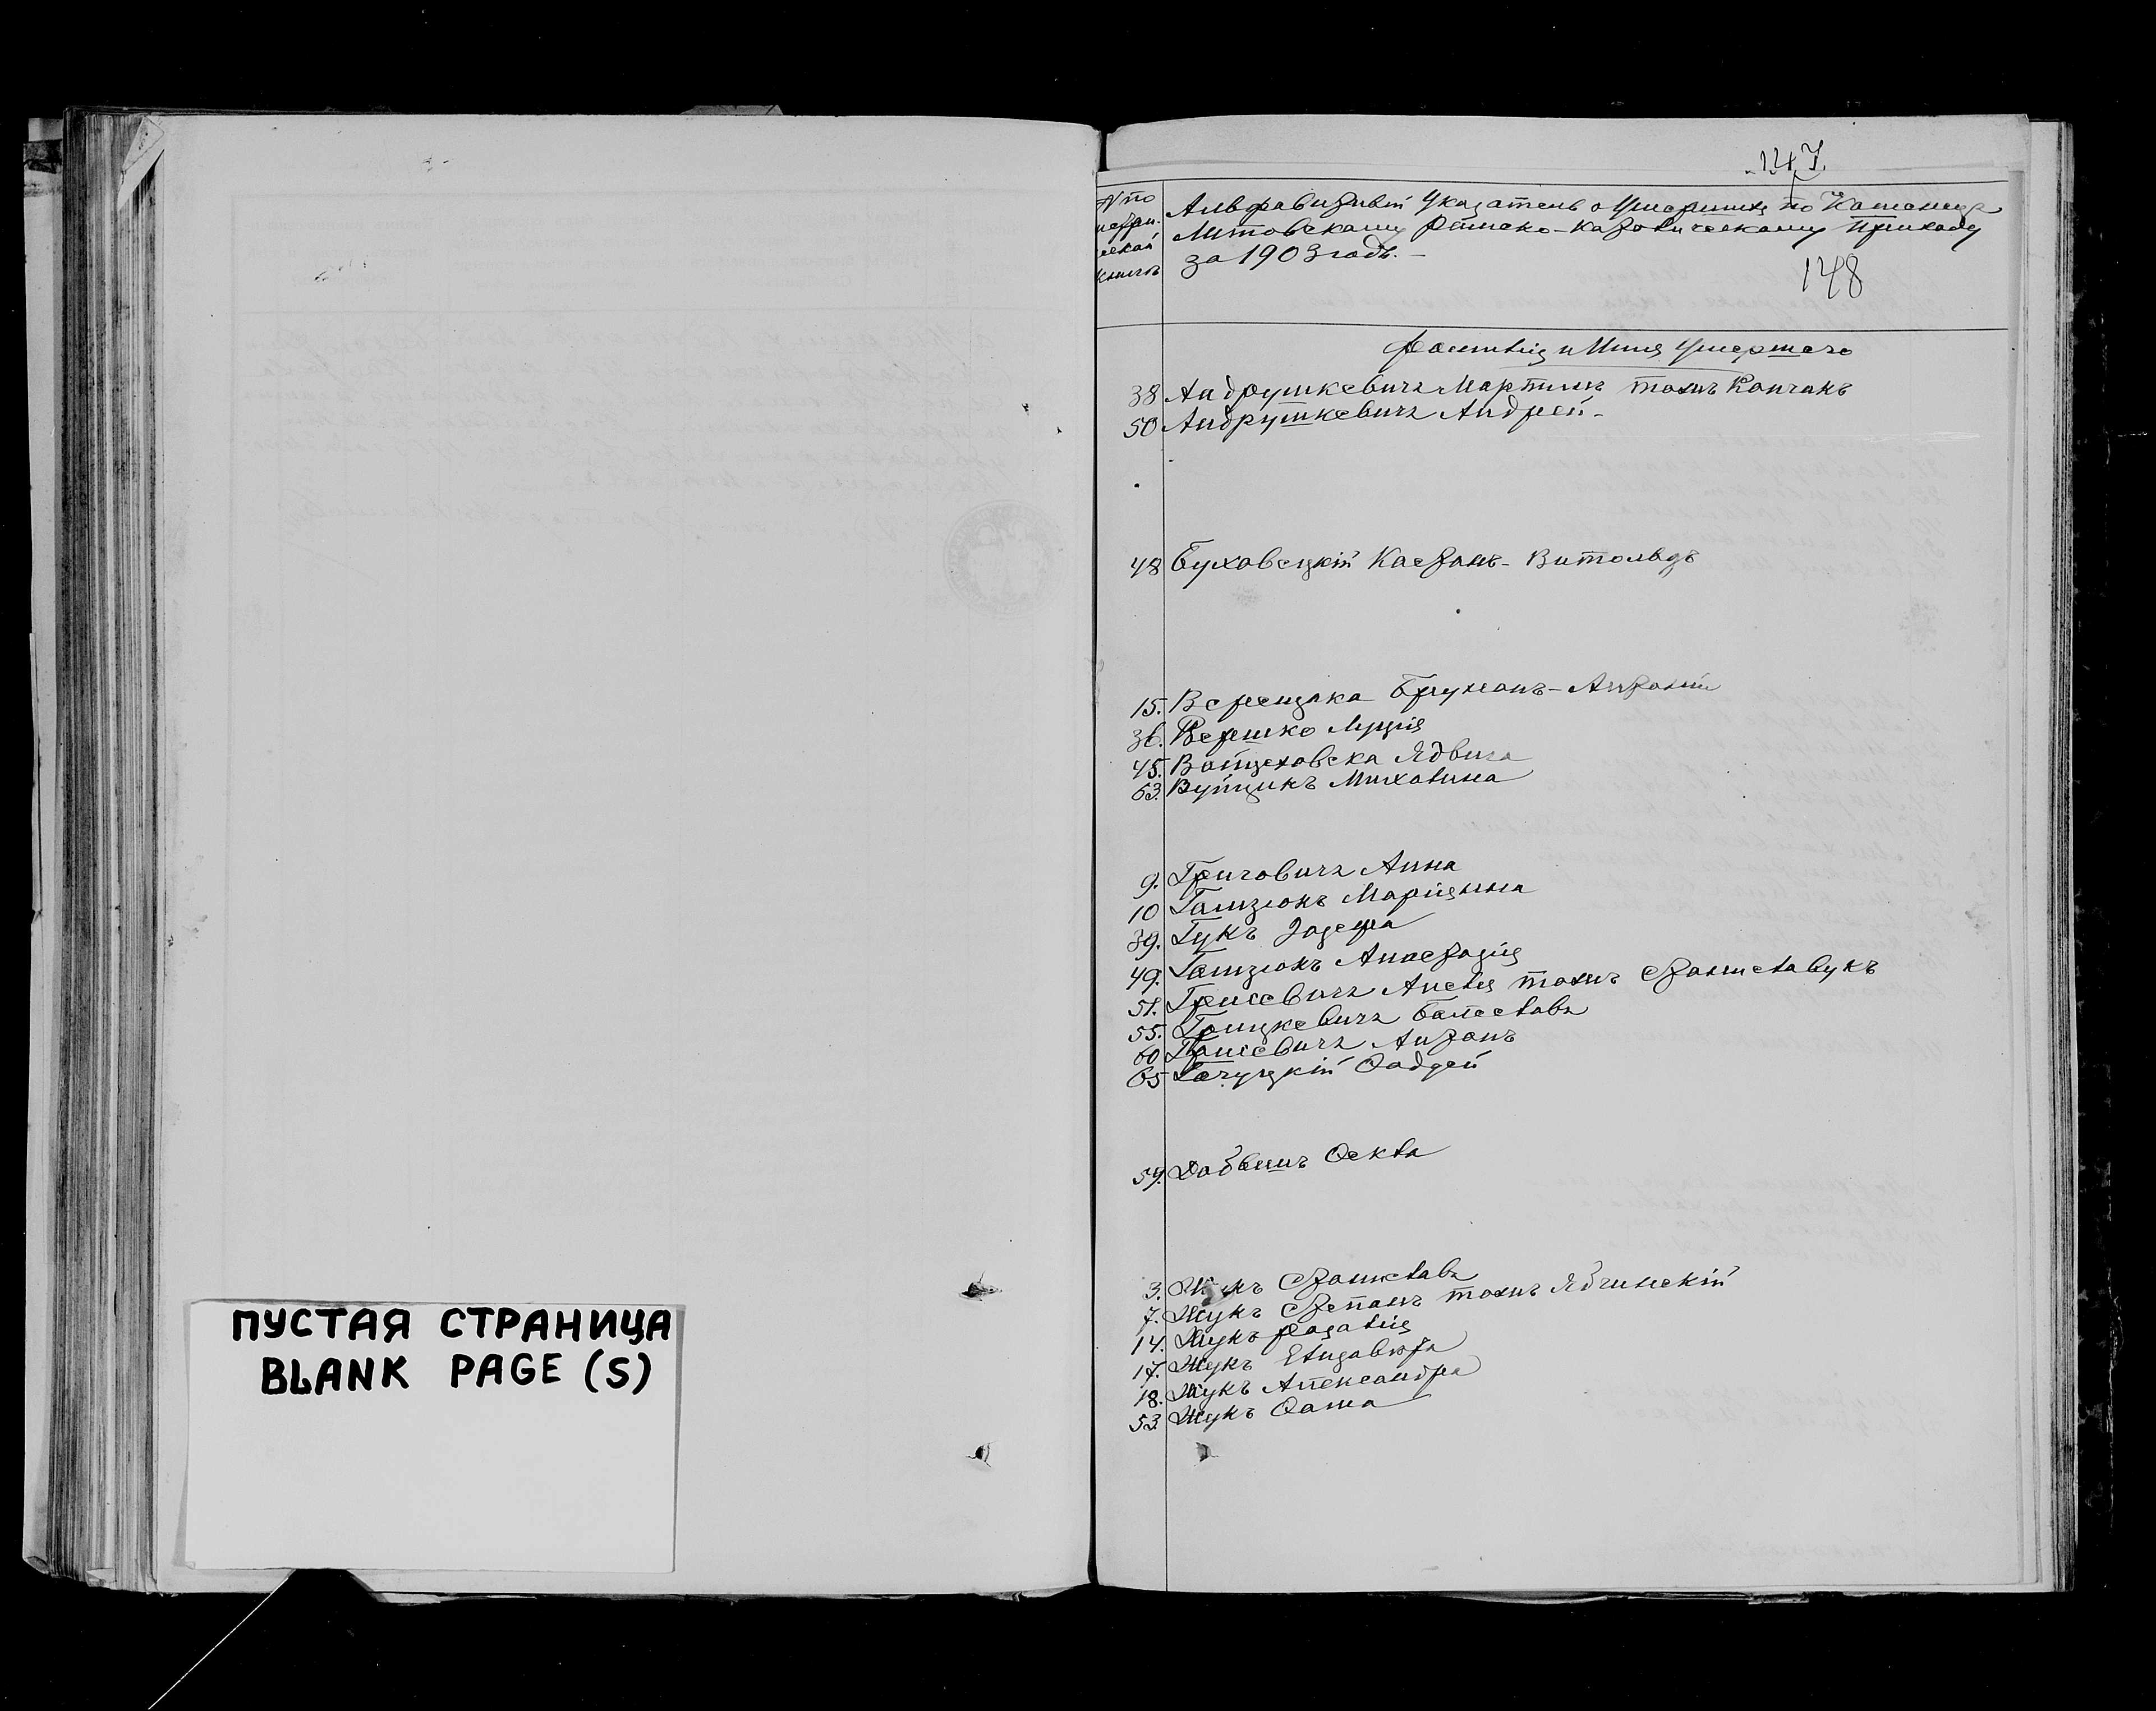 ПУСТАЯ СТРАНИЦА
BLANK PAGE (S)
147
№ по
метри-
ческой
книгѣ
Алфавитный Указатель о Умершихъ по Каменецъ
Литовскому Римско-Католическому Приходу
за 1903 годъ.
148
Фамилія и Имя Умершего
38 Андрушкевичъ Мартинъ тожъ Кончакъ
50 Андрушкевичъ Андрей
48 Буховецкій Каэтанъ-Витольдъ
15. Верещака Брунонъ-Антоній
36. Вершко Луція
45. Войцеховска Ядвига
63. Вуйцикъ Михалина
9. Григовичъ Анна
10 Гамзюкъ Маріанна
39. Гукъ Іозефа
49. Гамзюкъ Анастазія
51. Гриневичъ Анеля тожъ Станиславукъ
55. Болеславъ
60 Антонъ
65 Гачуцкій Фадей
59. Фекла
3. Жукъ Станиславъ
7. Жукъ Степанъ тожъ Ябчинскій
14. Жукъ Розалія
17. Жукъ Елизавета
18. Жукъ Александра
53. Жукъ